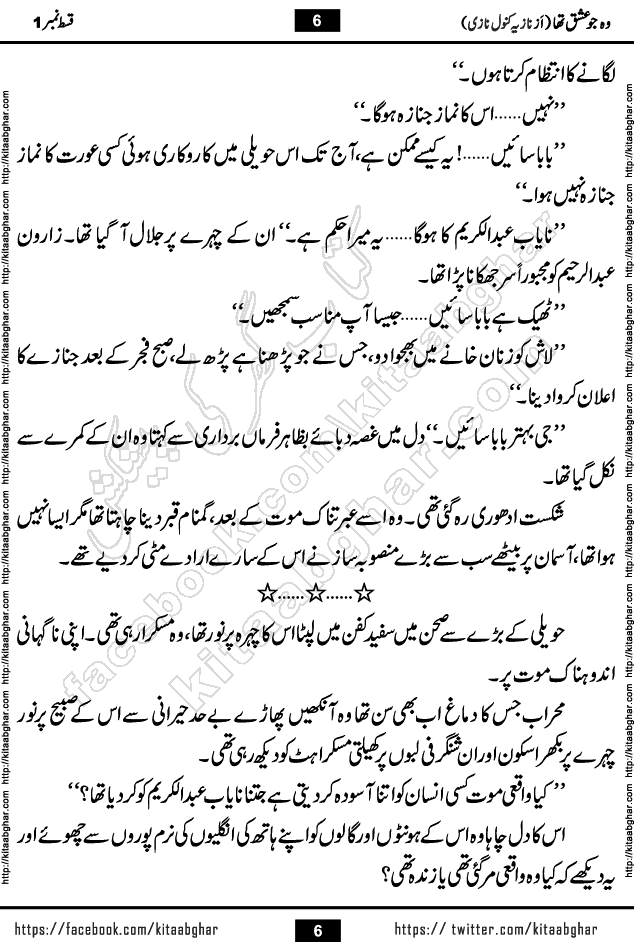 وہ جو عشق تھا (از نازیہ کنول نازی)
6
قسط نمبر 1
لگانے کا انتظام کرتا ہوں۔‘‘
’’نہیں……اس کا نماز جنازہ ہوگا۔‘‘
’’بابا سائیں……! یہ کیسے ممکن ہے، آج تک اس حویلی میں کاروکاری ہوئی کسی عورت کا نماز
جنازہ نہیں ہوا۔‘‘
’’نایاب عبدالکریم کا ہوگا……یہ میرا حکم ہے۔‘‘ ان کے چہرے پر جلال آ گیا تھا۔ زارون
عبدالرحیم کو مجبوراً سر جھکانا پڑا تھا۔
’’ٹھیک ہے بابا سائیں……جیسا آپ مناسب سمجھیں۔‘‘
’’لاش کو زنان خانے میں بھجوا دو، جس نے جو پڑھنا ہے پڑھ لے، صبح فجر کے بعد جنازے کا
اعلان کروا دینا۔‘‘
’’جی بہتر بابا سائیں۔‘‘ دل میں غصہ دبائے بظاہر فرماں برداری سے کہتا وہ ان کے کمرے سے
نکل گیا تھا۔
شکست ادھوری رہ گئی تھی۔ وہ اسے عبرتناک موت کے بعد، گمنام قبر دینا چاہتا تھا مگر ایسا نہیں
ہوا تھا، آسمان پر بیٹھے سب سے بڑے منصوبہ ساز نے اس کے سارے ارادے مٹی کر دیے تھے۔
☆……☆……☆
حویلی کے بڑے سے صحن میں سفید کفن میں لپٹا اس کا چہرہ پرنور تھا، وہ مسکرا رہی تھی۔ اپنی ناگہانی
اندوہناک موت پر۔
محراب جس کا دماغ اب بھی سن تھا وہ آنکھیں پھاڑے بے حد حیرانی سے اس کے صبیح پرنور
چہرے پر بکھرا سکون اور ان شنگرفی لبوں پر کھیلتی مسکراہٹ کو دیکھ رہی تھی۔
’’کیا واقعی موت کسی انسان کو اتنا آسودہ کر دیتی ہے جتنا نایاب عبدالکریم کو کر دیا تھا؟‘‘
اس کا دل چاہا وہ اس کے ہونٹوں اور گالوں کو اپنے ہاتھ کی انگلیوں کی نرم پوروں سے چھوئے اور
یہ دیکھے کہ کیا وہ واقعی مر گئی تھی یا زندہ تھی؟
https://facebook.com/kitaabghar
6
https:// twitter.com/kitaabghar
http://kitaabghar.com http://kitaabghar.com http://kitaabghar.com http://kitaabghar.com http://kitaabghar.com http://kitaabghar.com http://kitaabghar.com http://kitaabghar.com
http://kitaabghar.com http://kitaabghar.com http://kitaabghar.com http://kitaabghar.com http://kitaabghar.com http://kitaabghar.com http://kitaabghar.com http://kitaabghar.com
کتاب گھر کی پیشکش
facebook.com/kitaabghar
kitaabghar.com